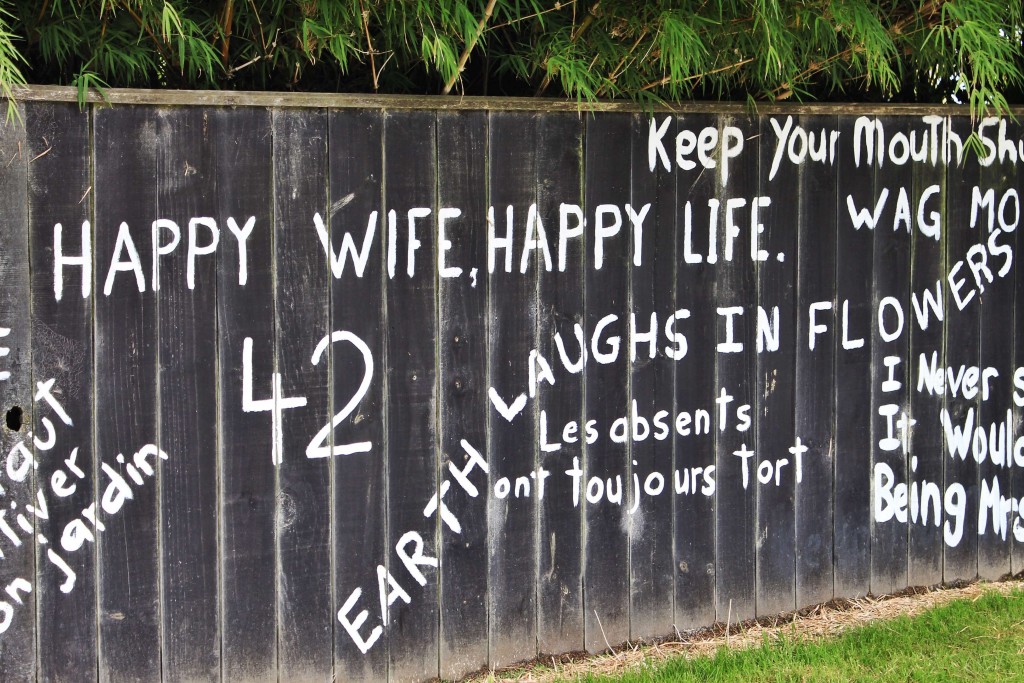 Keep Your Mouth
HAPPY WIFE, HAPPY LIFE.
WAG
42
EARTH LAUGHS IN FLOWERS
Les absents
ont toujours tort
I Never
It Would
Being Mrs
jardin